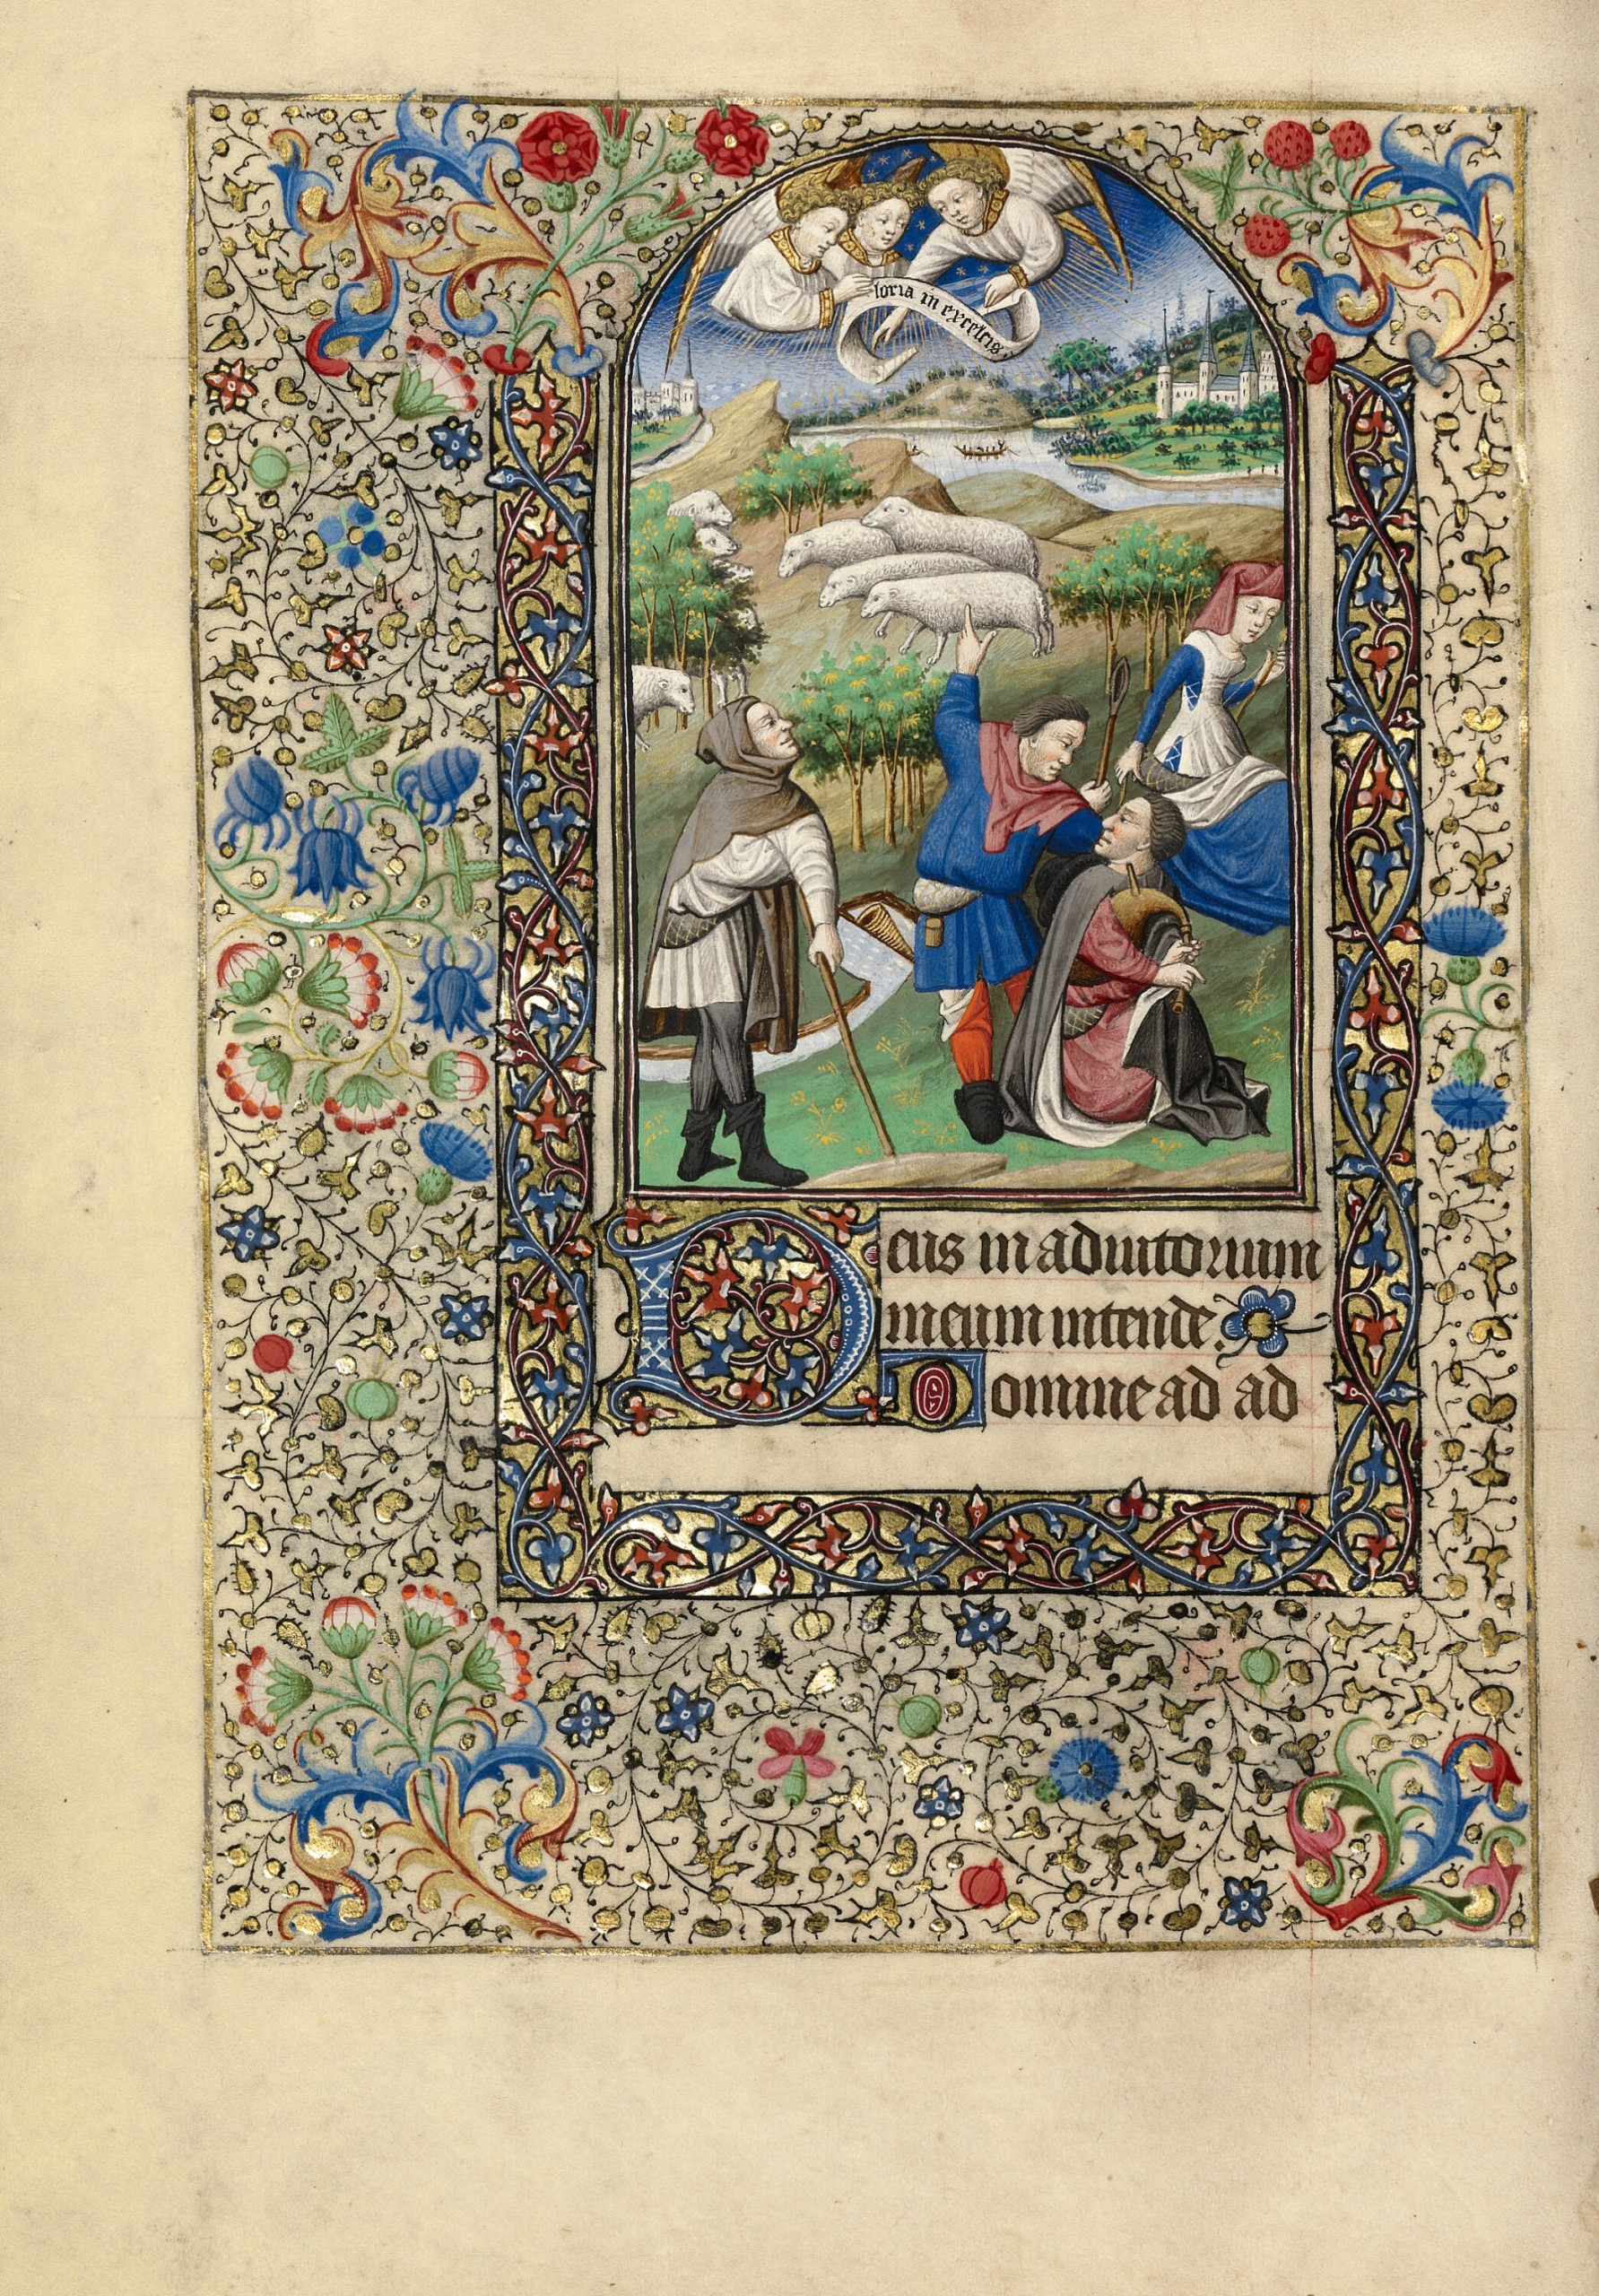 loria in excelcis.
Deus in adiutorium
meum intende.
Domine ad ad